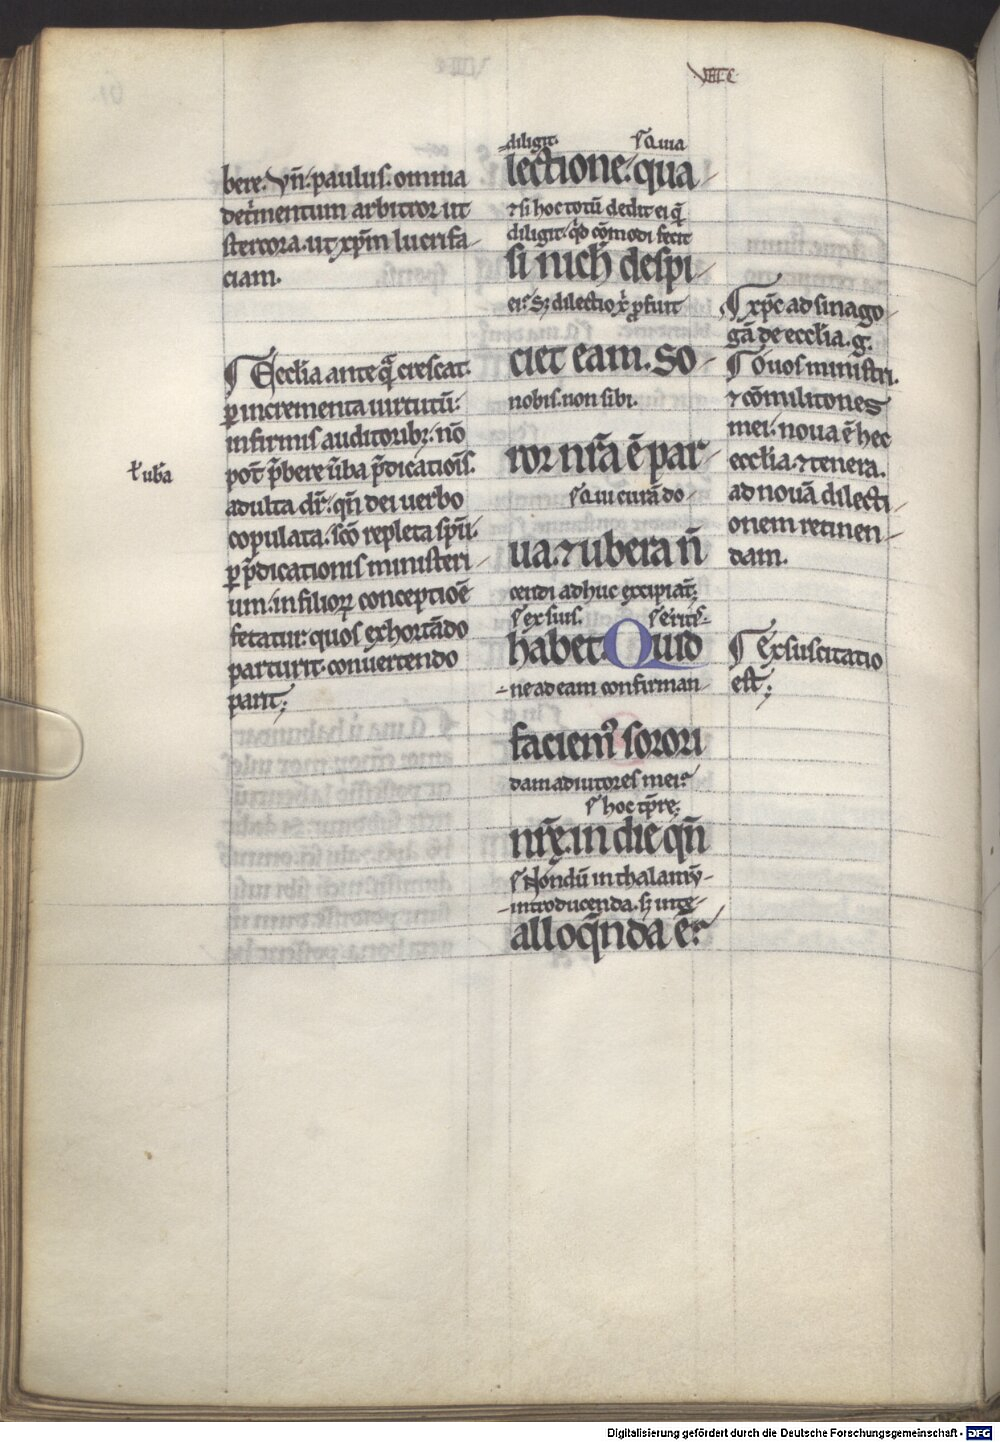 VIII c
bere. Vn̄. paulus. omnia
det̄mentum arbitror ut
stercora. ut xp̄m lucrifa-
ciam.
¶ Ecclīa ante q̄ crescat
ꝑ incrementa uirtutū:
infirmis auditoribꝫ. nō
pot̄ p̄bere ūba p̄dicatiōis.
ł ub̄a
adulta dr̄. qn̄ dei uerbo
copulata. sc̄o repleta sp̄u.
ꝑ p̄dicationis ministeri
um. in filioꝝ conceptiōe
fetatur. quos exhortādo
parturit. conuertendo
parit;
diligit. Quia
lectione. qua
⁊ si hoc totū dedit ei q̄
diligit. qd̄ cōmodi fecit
si nich̄ despi
ei? Sꝫ dilectio xp̄i ꝓfuit
ciet eam. So-
nobis. non sibi.
ror nr̄a ē par-
Qui curā do-
ua. ⁊ ubera n̄
cendi adhuc excipiat;
ex suis. eritis
habet. Quid
ne ad eam confirman-
faciemꝰ sorori
dam adiutores mei?
hoc tp̄re;
nr̄ę. in die qn̄
Nondū in thalamū
introducenda. sꝫ
alloq̄nda ē?
¶ xp̄c ad sinago-
gā de ecclīa. g.
¶ O uos ministri.
⁊ cōmilitones
mei. noua ē hec
ecclīa. ⁊ tenera.
ad nouā dilecti-
onem retinen-
dam.
¶ exsuscitatio
est;
Digitalisierung gefördert durch die Deutsche Forschungsgemeinschaft - DFG